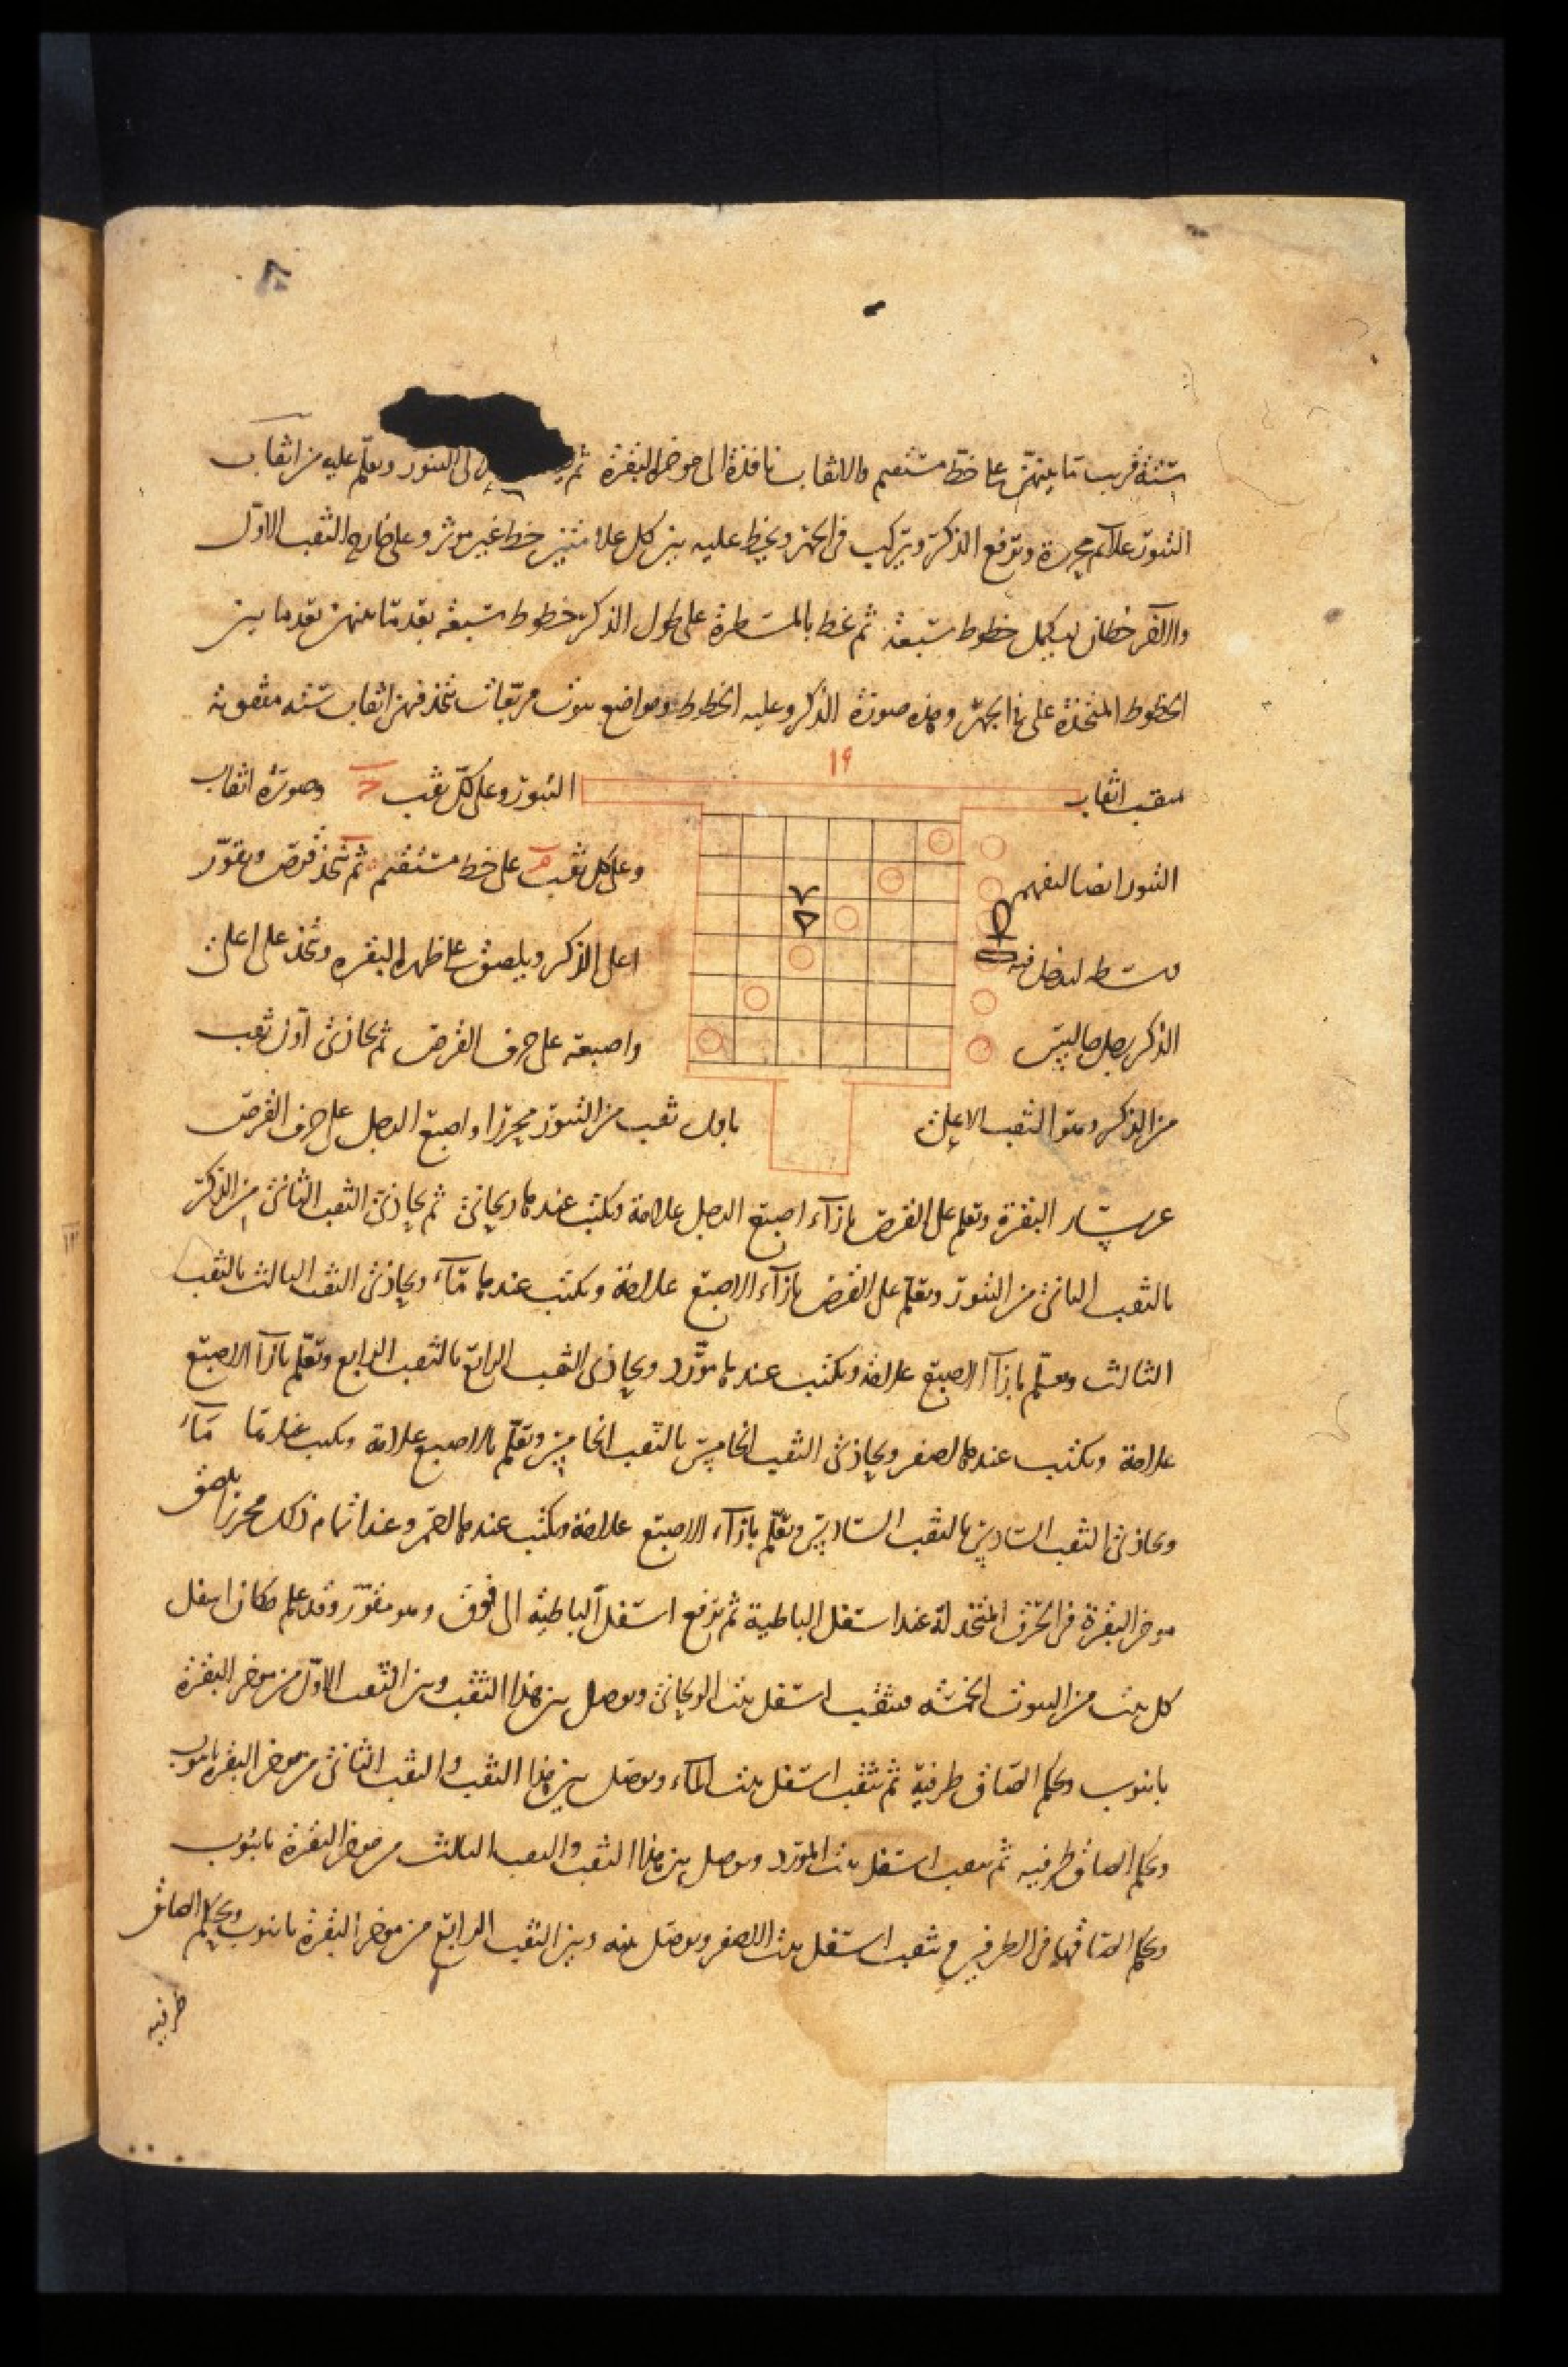 ستة قريب ما بينهن على خط مستقيم والاثقاب نافذة الى موضع البقرة ثم الى البثيون ويعلم عليه من اثقاب
البثيون علائم محررة ويرفع الذكر ويركب في الجهر ويخط عليه بين كل علامتين خط غير موثر وعلى خارج الثقب الاول
والاخر خطان ليكمل خطوط سبعة ثم نخط بالمسطرة على طول الذكر خطوط سبعة بعد ما بينهن بعد ما بين
الخطوط المتخذة على الجهر وهذه صورة الذكر وعليه الخطوط ومواضع بيوت مربعات تتخذ فيهن اثقاب ستة مثقوبة
١٩
اثقاب وعلى كل ثقب وصورة اثقاب
ايضا ليفهم وعلى كل ثقب على خط مستقيم ثم يتخذ قرص ويقور
وسطه ليدخل فيه اعلى الذكر ويلصق على ظهر البقرة ويتخذ على اعلى
الذكر رجل جالس واصبعه على حرف القرص ثم يحاذى اول ثقب
من الذكر وهو الثقب الاعلى باول ثقب من محررا واصبع الرجل على حرف القرص
عن يسار البقرة ويعلم على القرص بازاء اصبع الرجل علامة ويكتب عندها ريحاني ثم يحاذى الثقب الثاني من الذكر
بالثقب الثاني من ويعلم على القرص بازاء الاصبع علامة ويكتب عندها ماء ويحاذى الثقب الثالث بالثقب
الثالث ويعلم بازاء الاصبع علامة ويكتب عندها مورد ويحاذى الثقب الرابع بالثقب الرابع ويعلم بازاء الاصبع
علامة ويكتب عندها اصفر ويحاذى الثقب الخامس بالثقب الخامس ويعلم بالاصبع علامة ويكتب عندها ماء
ويحاذى الثقب السادس بالثقب السادس ويعلم بازاء الاصبع علامة ويكتب عندها احمر وعند اتمام ذلك محررا يلصق
موخر البقرة في الخرق المتخذ له عند اسفل الباطية ثم يرفع اسفل الباطية الى فوق وهو مقور وقد علم مكان اسفل
كل بيت من البيوت الخمسة فيثقب اسفل بيت الريحاني ويوصل بين هذا الثقب وبين الثقب الاول من موخر البقرة
بانبوب ويحكم الصاق طرفيه ثم يثقب اسفل بيت الماء ويوصل بين هذا الثقب والثقب الثاني من موخر البقرة بانبوب
ويحكم الصاق طرفيه ثم يثقب اسفل بيت المورد ويوصل بين هذا الثقب والثقب الثالث من موخر البقرة بانبوب
ويحكم الصاقها في الطرفين ويثقب اسفل بيت الاصفر ويوصل بينه وبين الثقب الرابع من موخر البقرة بانبوب ويحكم الصاق
طرفيه